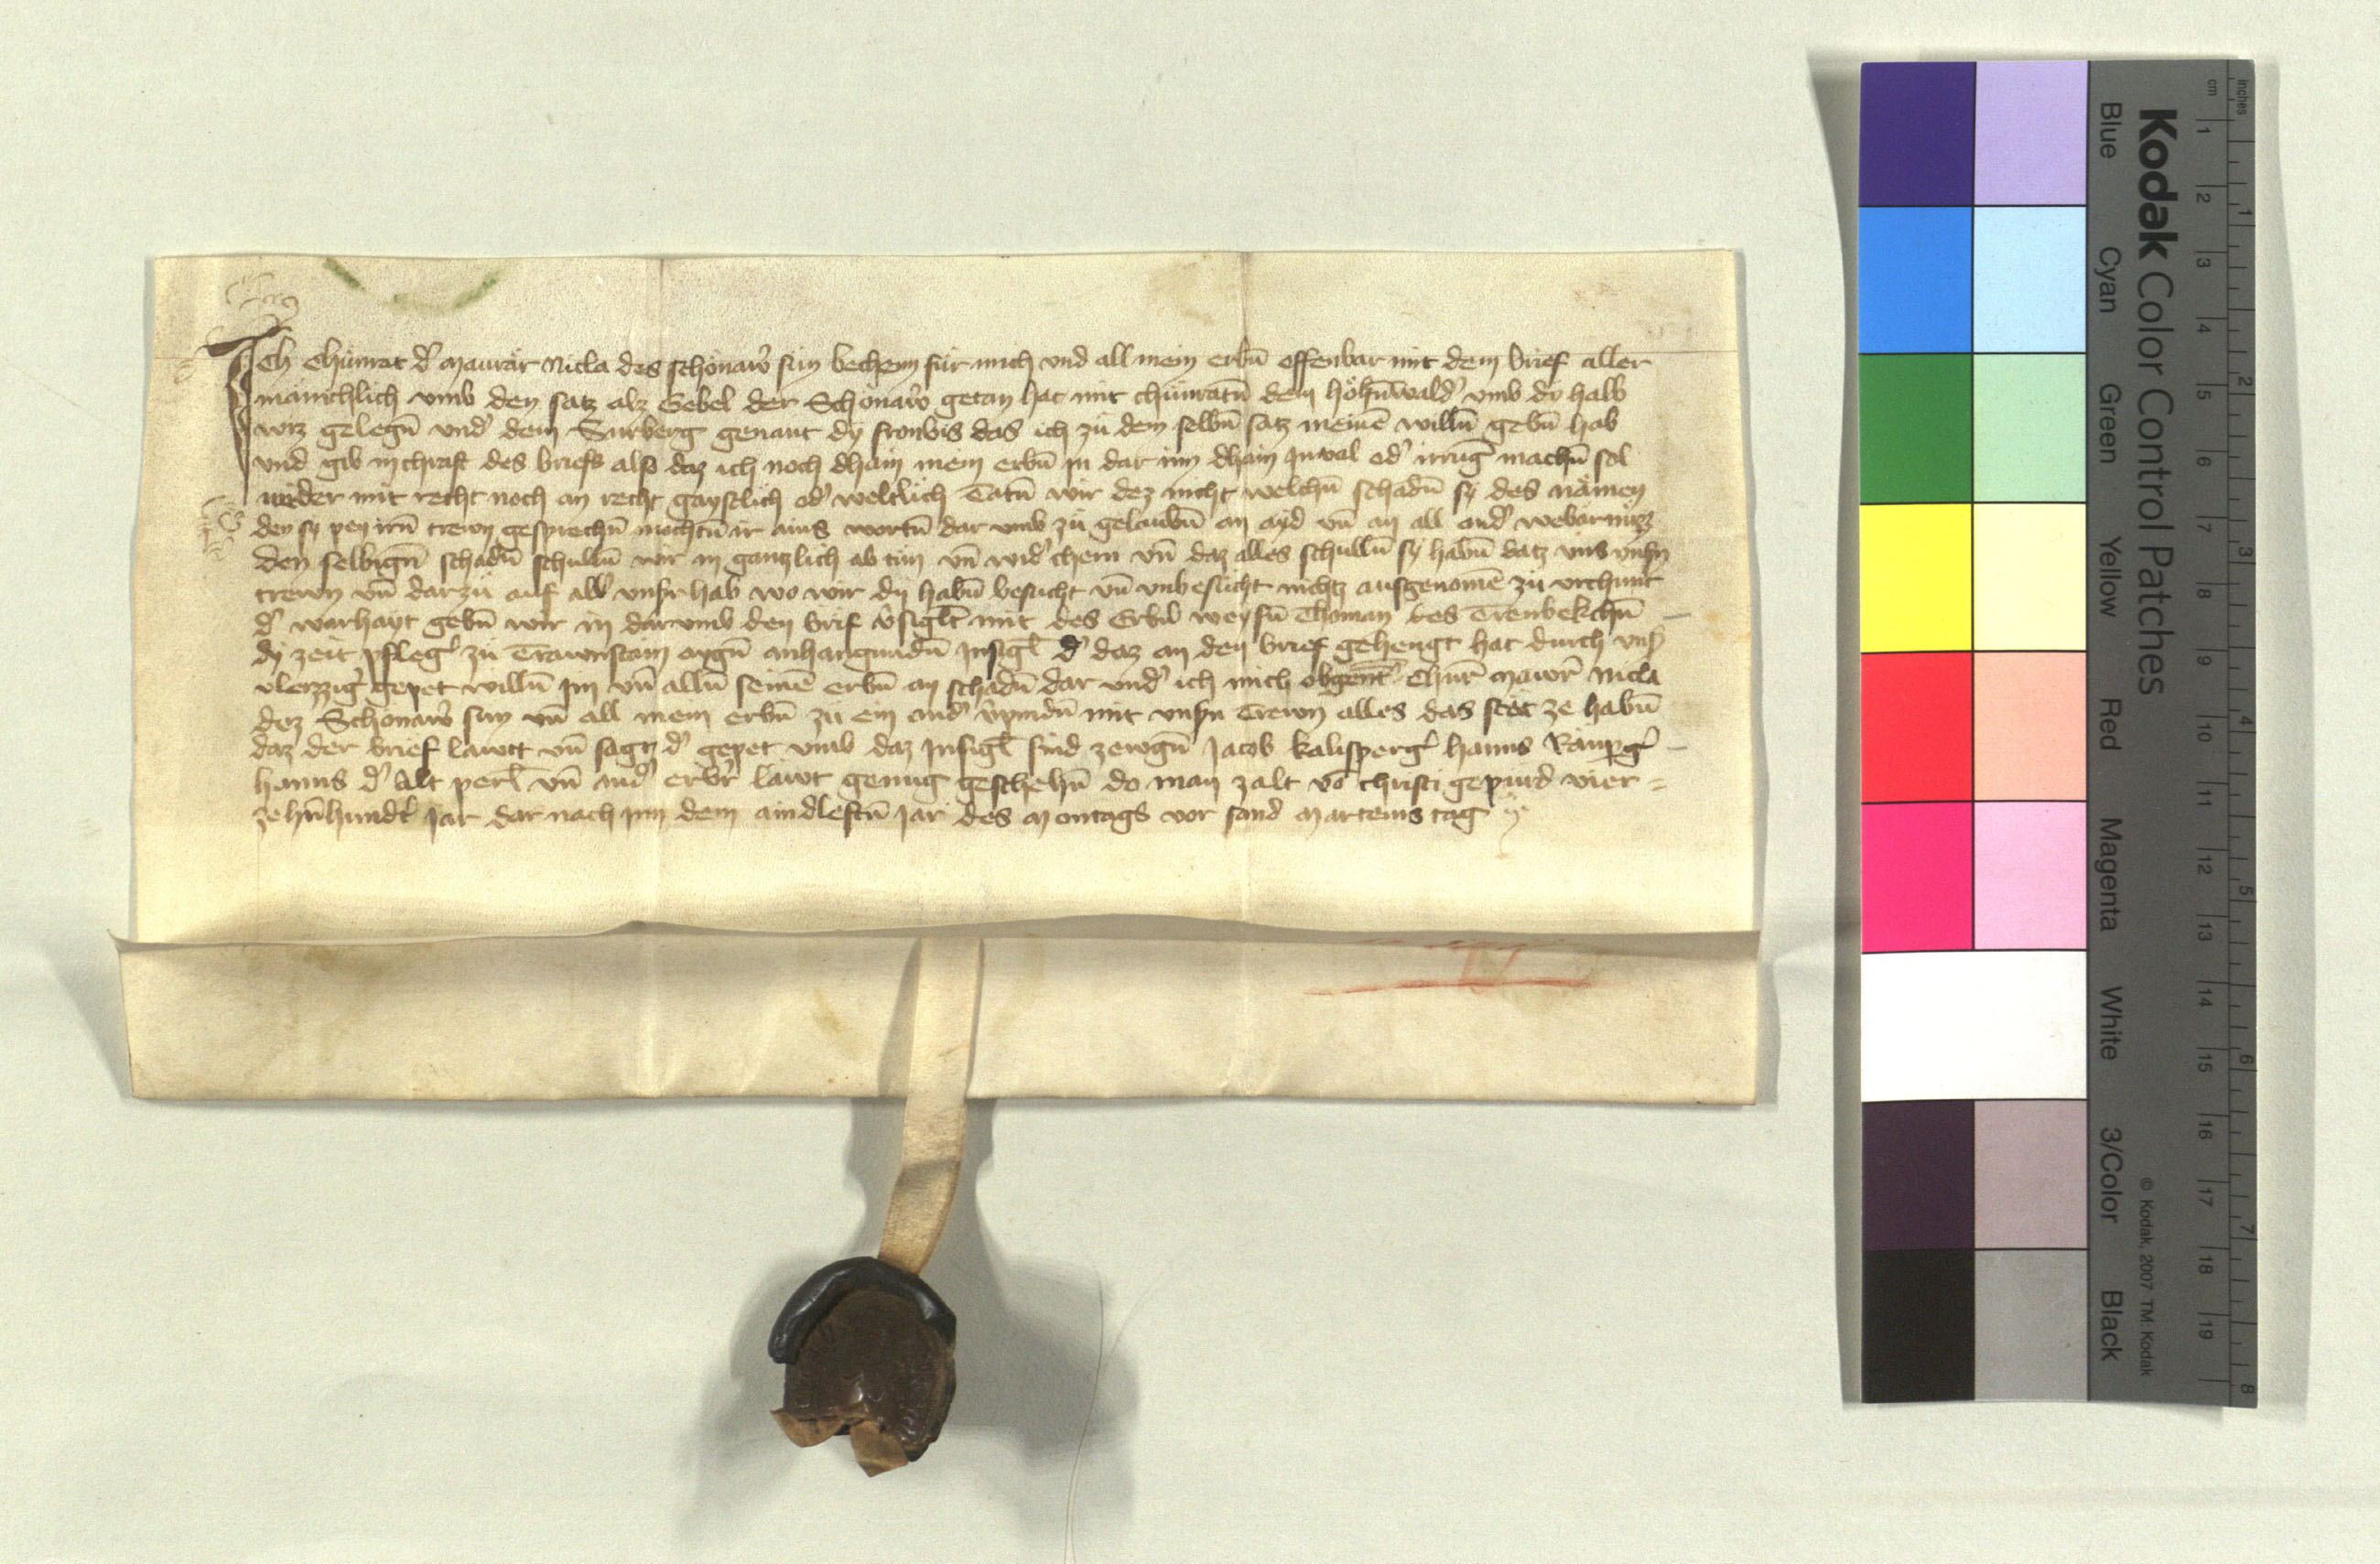 Ich Chunrat d' Maurär Nicla des schönaw's sun bechenn für mich vnd all mein erbn̄ offenbar mit dem brief aller
mänichlich vmb den satz alz Sebel der Schönaw's getan hat mit chünratn̄ dem höhn̄wald' vmb dy halb
wiz gelegn̄ vnd' dem Surberg genant dy fronbis das ich zu dem selbn̄ satz meinē willn̄ gebn̄ hab
vnd gib in chraft des briefs also daz ich noch dhain mein erbn̄ in dar inn dhain Inual od' irrūg machn̄ sol
weder mit recht noch an recht gaystlich od' weltlich Tätn̄ wir dez nicht welchn̄ schadn̄ sy des nämen
den sy pey irn̄ trewn gesprechn̄ möchtn̄ ir ains wortn̄ dar vmb zu gelaubn̄ an ayd vn̄ an all and' webärnüzz
den selbign̄ schadn̄ schulln̄ wir in gantzlich ab tun vn̄ wid' chern vn̄ daz alles schulln̄ sy habn̄ datz vns vnsn
trewn vn̄ darzu auf all' vnsr hab wo wir dy habn̄ besucht vn̄ vnbesucht nichtz ausgenomē zu vrchunt
d' warhayt gebn̄ wir in darumb den brif v'siglt mit des Erbn̄ weysn̄ Thoman des Trenbekchn̄
dy zeit pfleg' zu Trawnstain aygn̄ anhangundn̄ Insigl d' daz an den brief gehengt hat durch vns'
vleizzig' gepet willn̄ im vn̄ alln̄ seinē erbn̄ an schadn̄ dar vnd' ich mich obgent' Chunr̄ Mawr' Nicla
dez Schonaw's sun vn̄ all mein erbn̄ zu ein and' v'pindn̄ mit vnsn trewn alles das stät ze habn̄
daz der brief lawtt vn̄ sagtz d' gepet vmb daz Insigl sind zewgn̄ Jacob kalisperg' hanns Rämpg'
hanns d' Alt perl vn̄ and' erbr' läwt genug geschehn̄ do man zalt vō christi gepurd vier=
zehn̄hundt' Jar dar nach inn dem aindleftn̄ Jar des Montags vor sand Marteins tag
Kodak Color Control Patches
Blue Cyan Green Yellow Red Magenta White 3/Color Black
© Kodak, 2007 TM: Kodak
inches 1 2 3 4 5 6 7 8
cm 1 2 3 4 5 6 7 8 9 10 11 12 13 14 15 16 17 18 19